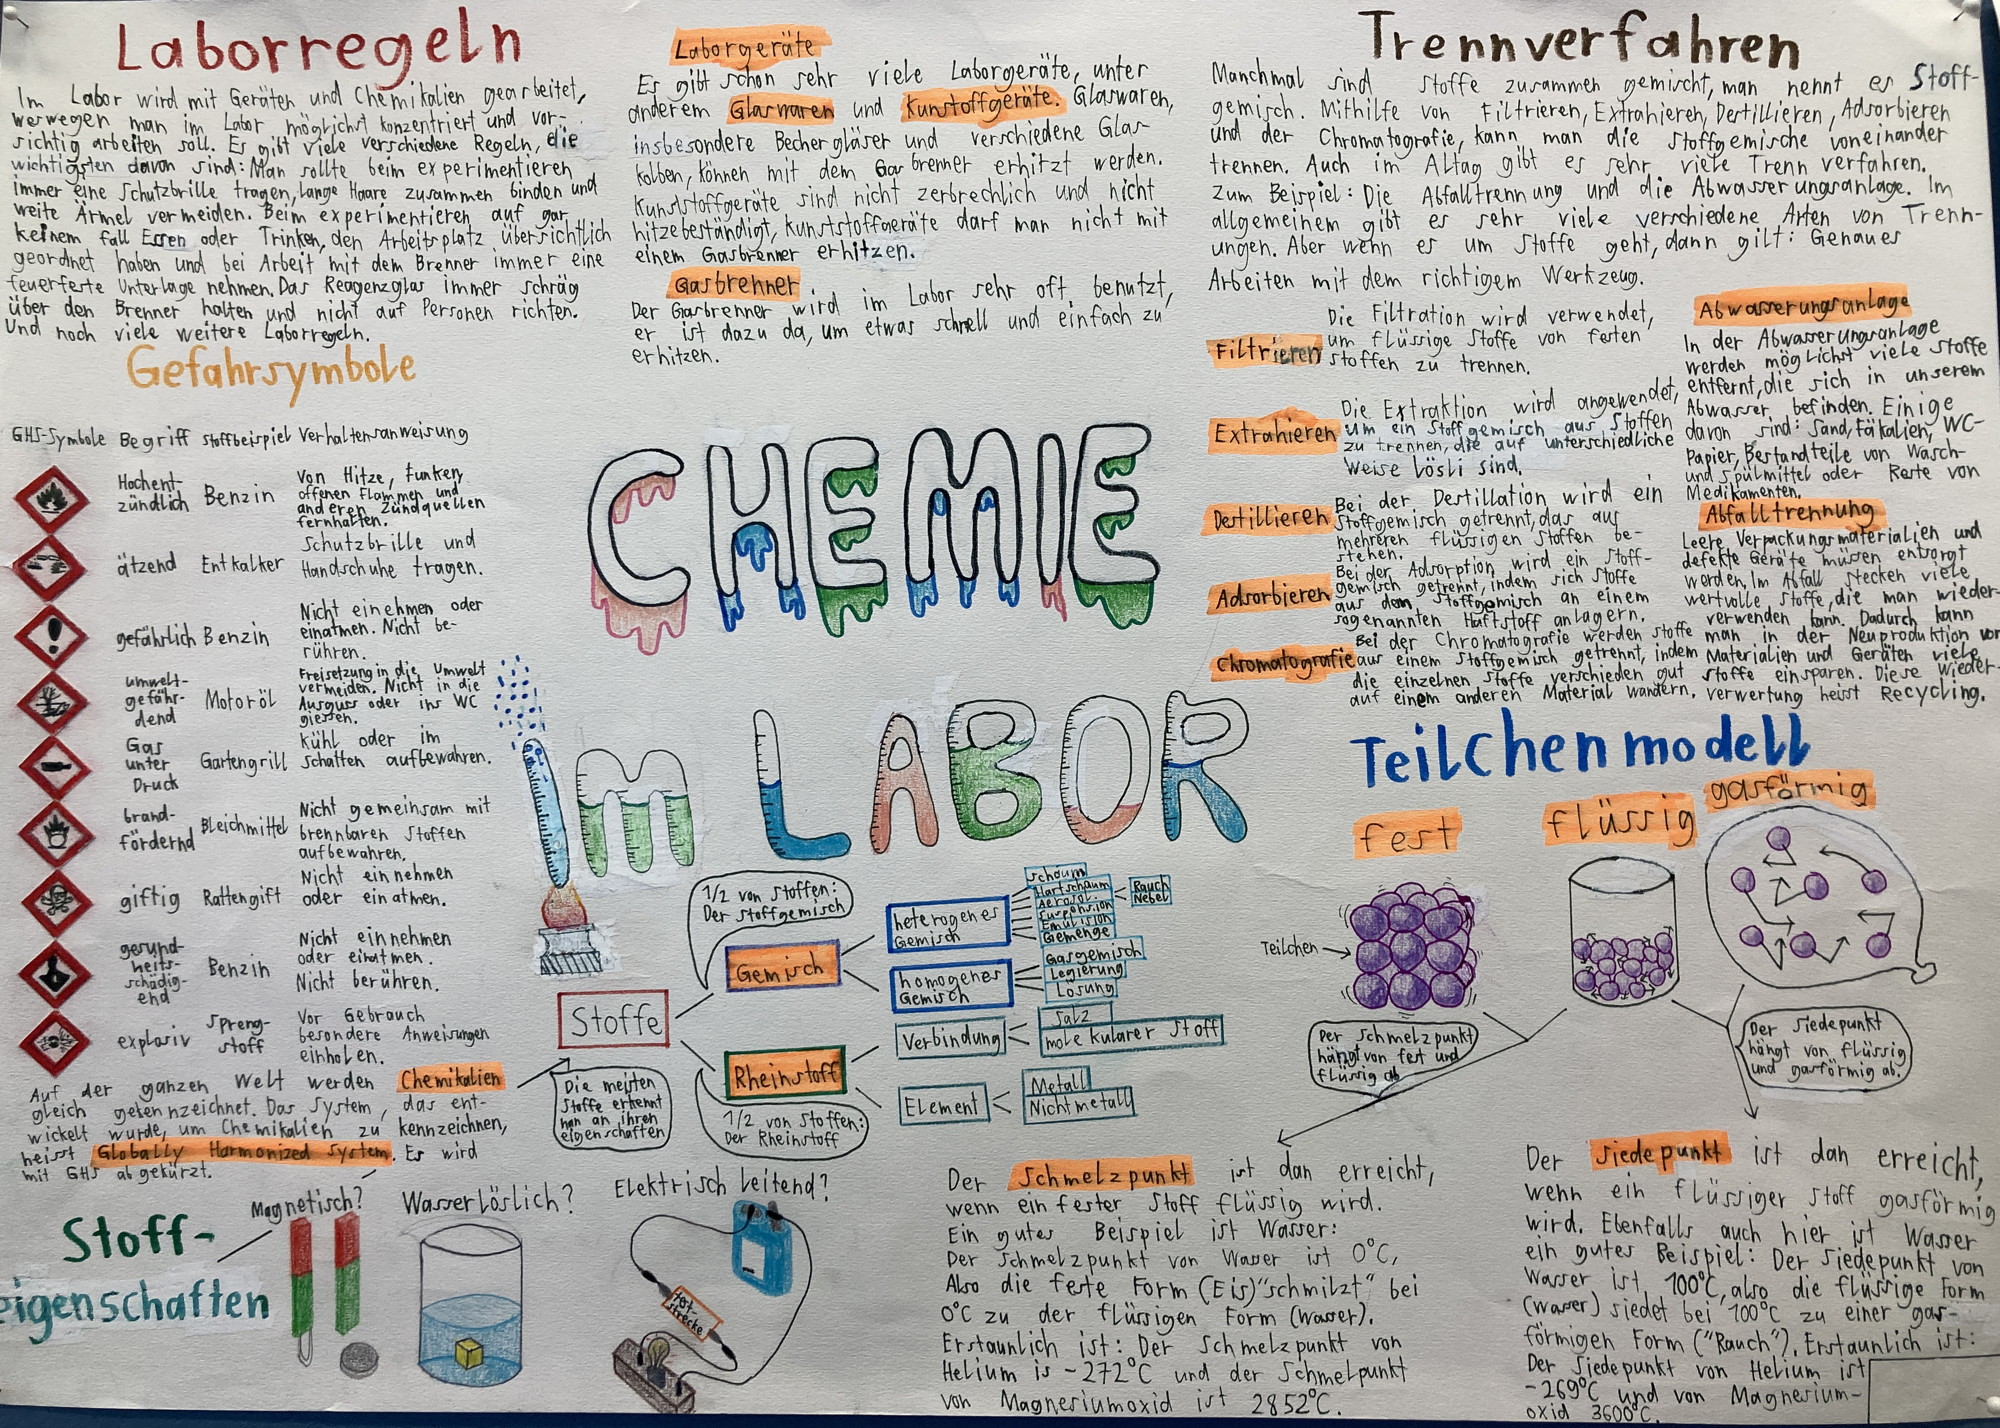 Laborregeln
Im Labor wird mit Geräten und Chemikalien gearbeitet,
werwegen man im Labor möglichst konzentriert und vor-
sichtig arbeiten soll. Es gibt viele verschiedene Regeln, die
wichtigsten davon sind: Man sollte beim experimentieren
immer eine Schutzbrille tragen, lange Haare zusammen binden und
weite Ärmel vermeiden. Beim experimentieren auf gar
keinem fall Essen oder Trinken, den Arbeitsplatz übersichtlich
geordnet haben und bei Arbeit mit dem Brenner immer eine
feuerfeste Unterlage nehmen. Das Reagenzglas immer schräg
über den Brenner halten und nicht auf Personen richten.
Und noch viele weitere Laborregeln.
Gefahrsymbole
GHS-Symbole Begriff Stoffbeispiel Verhaltensanweisung
Hochent-
zündlich
Benzin
Von Hitze, Funken,
offenen Flammen und
anderen Zündquellen
fernhalten.
ätzend
Entkalker
Schutzbrille und
Handschuhe tragen.
gefährlich
Benzin
Nicht einehmen oder
einatmen. Nicht be-
rühren.
umwelt-
gefähr-
dend
Motoröl
Freisetzung in die Umwelt
vermeiden. Nicht in die
Ausguss oder ins WC
giessen.
Gas
unter
Druck
Gartengrill
Kühl oder im
Schatten aufbewahren.
brand-
fördernd
Bleichmittel
Nicht gemeinsam mit
brennbaren Stoffen
aufbewahren.
giftig
Rattengift
Nicht einnehmen
oder einatmen.
gesund-
heits-
schädig-
end
Benzin
Nicht einnehmen
oder einatmen.
Nicht berühren.
explosiv
Spreng-
stoff
Vor Gebrauch
besondere Anweisungen
einholen.
Auf der ganzen Welt werden Chemikalien
gleich gekennzeichnet. Das System, das ent-
wickelt wurde, um Chemikalien zu kennzeichnen,
heisst Globally Harmonized System. Es wird
mit GHS abgekürzt.
Laborgeräte
Es gibt schon sehr viele Laborgeräte, unter
anderem Glaswaren und Kunstoffgeräte. Glaswaren,
insbesondere Bechergläser und verschiedene Glas-
kolben, können mit dem Gasbrenner erhitzt werden.
Kunststoffgeräte sind nicht zerbrechlich und nicht
hitzebeständigt, kunststoffgeräte darf man nicht mit
einem Gasbrenner erhitzen.
Gasbrenner
Der Gasbrenner wird im Labor sehr oft benutzt,
er ist dazu da, um etwas schnell und einfach zu
erhitzen.
CHEMIE
Im LABOR
1/2 von Stoffen:
Der Stoffgemisch
Stoffe
Gemisch
heterogenes
Gemisch
Schaum
Hartschaum
Aerosol
Suspension
Emulsion
Gemenge
Rauch
Nebel
homogenes
Gemisch
Gasgemisch
Legierung
Lösung
Rheinstoff
Verbindung
Salz
molekularer Stoff
Element
Metall
Nichtmetall
1/2 von Stoffen:
Der Rheinstoff
Die meisten
Stoffe erkennt
man an ihren
eigenschaften
Stoff-
eigenschaften
Magnetisch?
Wasserlöslich?
Elektrisch leitend?
Test-
strecke
Trennverfahren
Manchmal sind Stoffe zusammen gemischt, man nennt es Stoff-
gemisch. Mithilfe von Filtrieren, Extrahieren, Dertillieren, Adsorbieren
und der Chromatografie, kann man die Stoffgemische voneinander
trennen. Auch im Altag gibt es sehr viele Trenn verfahren.
zum Beispiel: Die Abfalltrennung und die Abwasserungsanlage. Im
allgemeinem gibt es sehr viele verschiedene Arten von Trenn-
ungen. Aber wenn es um Stoffe geht, dann gilt: Genaues
Arbeiten mit dem richtigem Werkzeug.
Filtrieren
Die Filtration wird verwendet,
um flüssige Stoffe von festen
Stoffen zu trennen.
Extrahieren
Die Extraktion wird angewendet,
um ein Stoffgemisch aus Stoffen
zu trennen, die auf unterschiedliche
Weise lösli sind.
Destillieren
Bei der Destillation wird ein
Stoffgemisch getrennt, das aus
mehreren flüssigen Stoffen be-
stehen.
Adsorbieren
Bei der Adsorption wird ein Stoff-
gemisch getrennt, indem sich Stoffe
aus dem Stoffgemisch an einem
sogenannten Haftstoff anlagern.
Chromatografie
Bei der Chromatografie werden Stoffe
aus einem Stoffgemisch getrennt, indem
die einzelnen Stoffe verschieden gut
auf einem anderen Material wandern.
Abwasserungsanlage
In der Abwasserungsanlage
werden möglichst viele Stoffe
entfernt, die sich in unserem
Abwasser befinden. Einige
davon sind: Sand, Fäkalien, WC-
Papier, Bestandteile von Wasch-
und Spülmittel oder Reste von
Medikamenten.
Abfalltrennung
Leere Verpackungsmaterialien und
defekte Geräte müssen entsorgt
werden. Im Abfall stecken viele
wertvolle Stoffe, die man wieder-
verwenden kann. Dadurch kann
man in der Neuproduktion von
Materialien und Geräten viele
Stoffe einsparen. Diese wieder-
verwertung heisst Recycling.
Teilchenmodell
fest
flüssig
gasförmig
Teilchen
Der Schmelzpunkt
hängt von fest und
flüssig ab
Der Siedepunkt
hängt von flüssig
und gasförmig ab.
Der Schmelzpunkt ist dan erreicht,
wenn ein fester Stoff flüssig wird.
Ein gutes Beispiel ist Wasser:
Der Schmelzpunkt von Wasser ist 0°C,
Also die feste Form (Eis) "schmilzt" bei
0°C zu der flüssigen Form (Wasser).
Erstaunlich ist: Der Schmelzpunkt von
Helium is -272°C und der Schmelpunkt
von Magnesiumoxid ist 2852°C.
Der Siedepunkt ist dan erreicht,
wenn ein flüssiger Stoff gasförmig
wird. Ebenfalls auch hier ist Wasser
ein gutes Beispiel: Der Siedepunkt von
Wasser ist 100°C, also die flüssige Form
(Wasser) siedet bei 100°C zu einer gas-
förmigen Form ("Rauch"). Erstaunlich ist:
Der Siedepunkt von Helium ist
-269°C und von Magnesium-
oxid 3600°C.